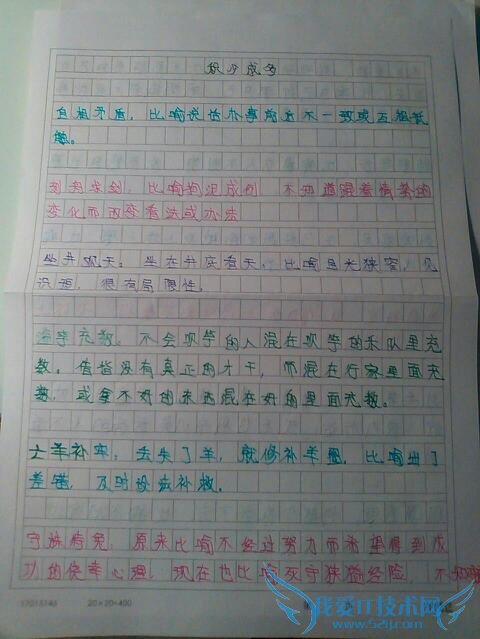 积少成多
自相矛盾，比喻说话办事前后不一致或互相抵
触。
刻舟求剑，比喻拘泥成例，不知道跟着情势的
变化而改变看法或办法
坐井观天：坐在井底看天，比喻目光狭窄，见
识短，很有局限性。
滥竽充数。不会吹竽的人混在吹竽的乐队里充
数。借指没有真正的才干，而混在行家里面充
数，或拿不好的东西混在好的里面充数。
亡羊补牢：丢失了羊，就修补羊圈，比喻出了
差错，及时设法补救。
守株待兔：原来比喻不经过努力而希望得到成
功的侥幸心理，现在也比喻死守狭隘经验，不知
20×20=400
我爱IT技术网
www.52ij.com